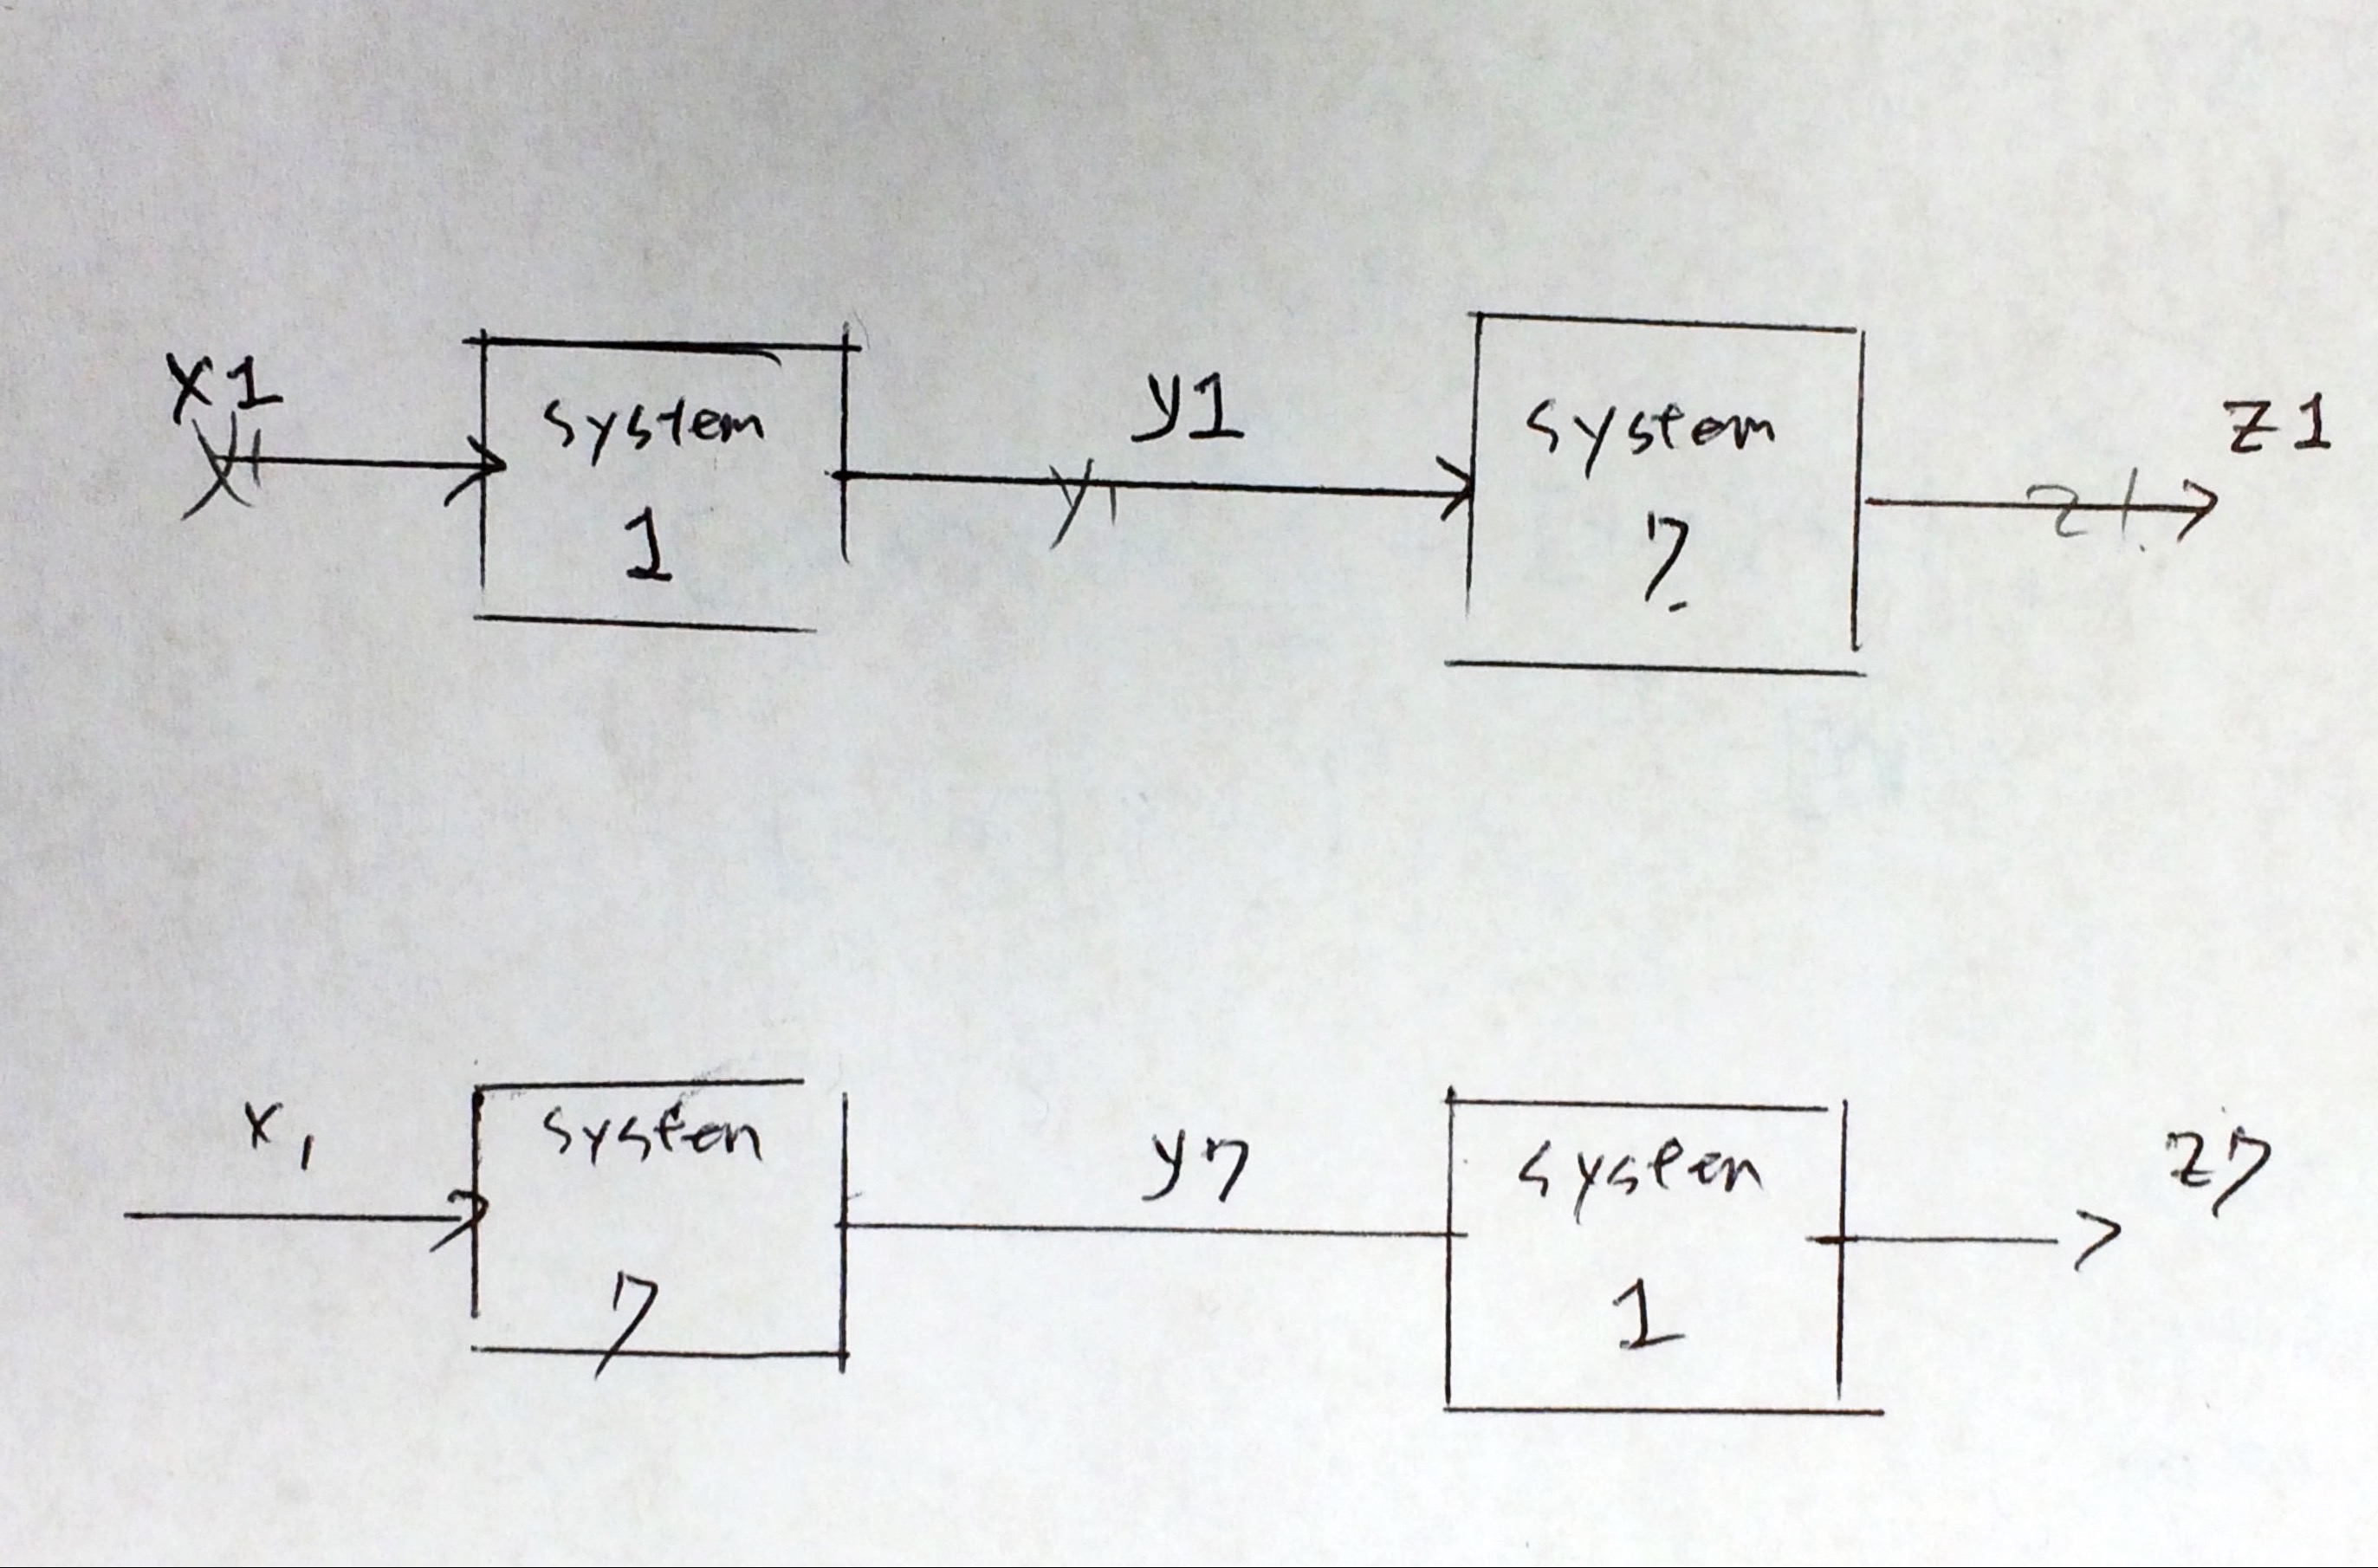 x1
x1
system
1
y1
y1
system
7
z1
z1
x1
system
7
y7
system
1
z7